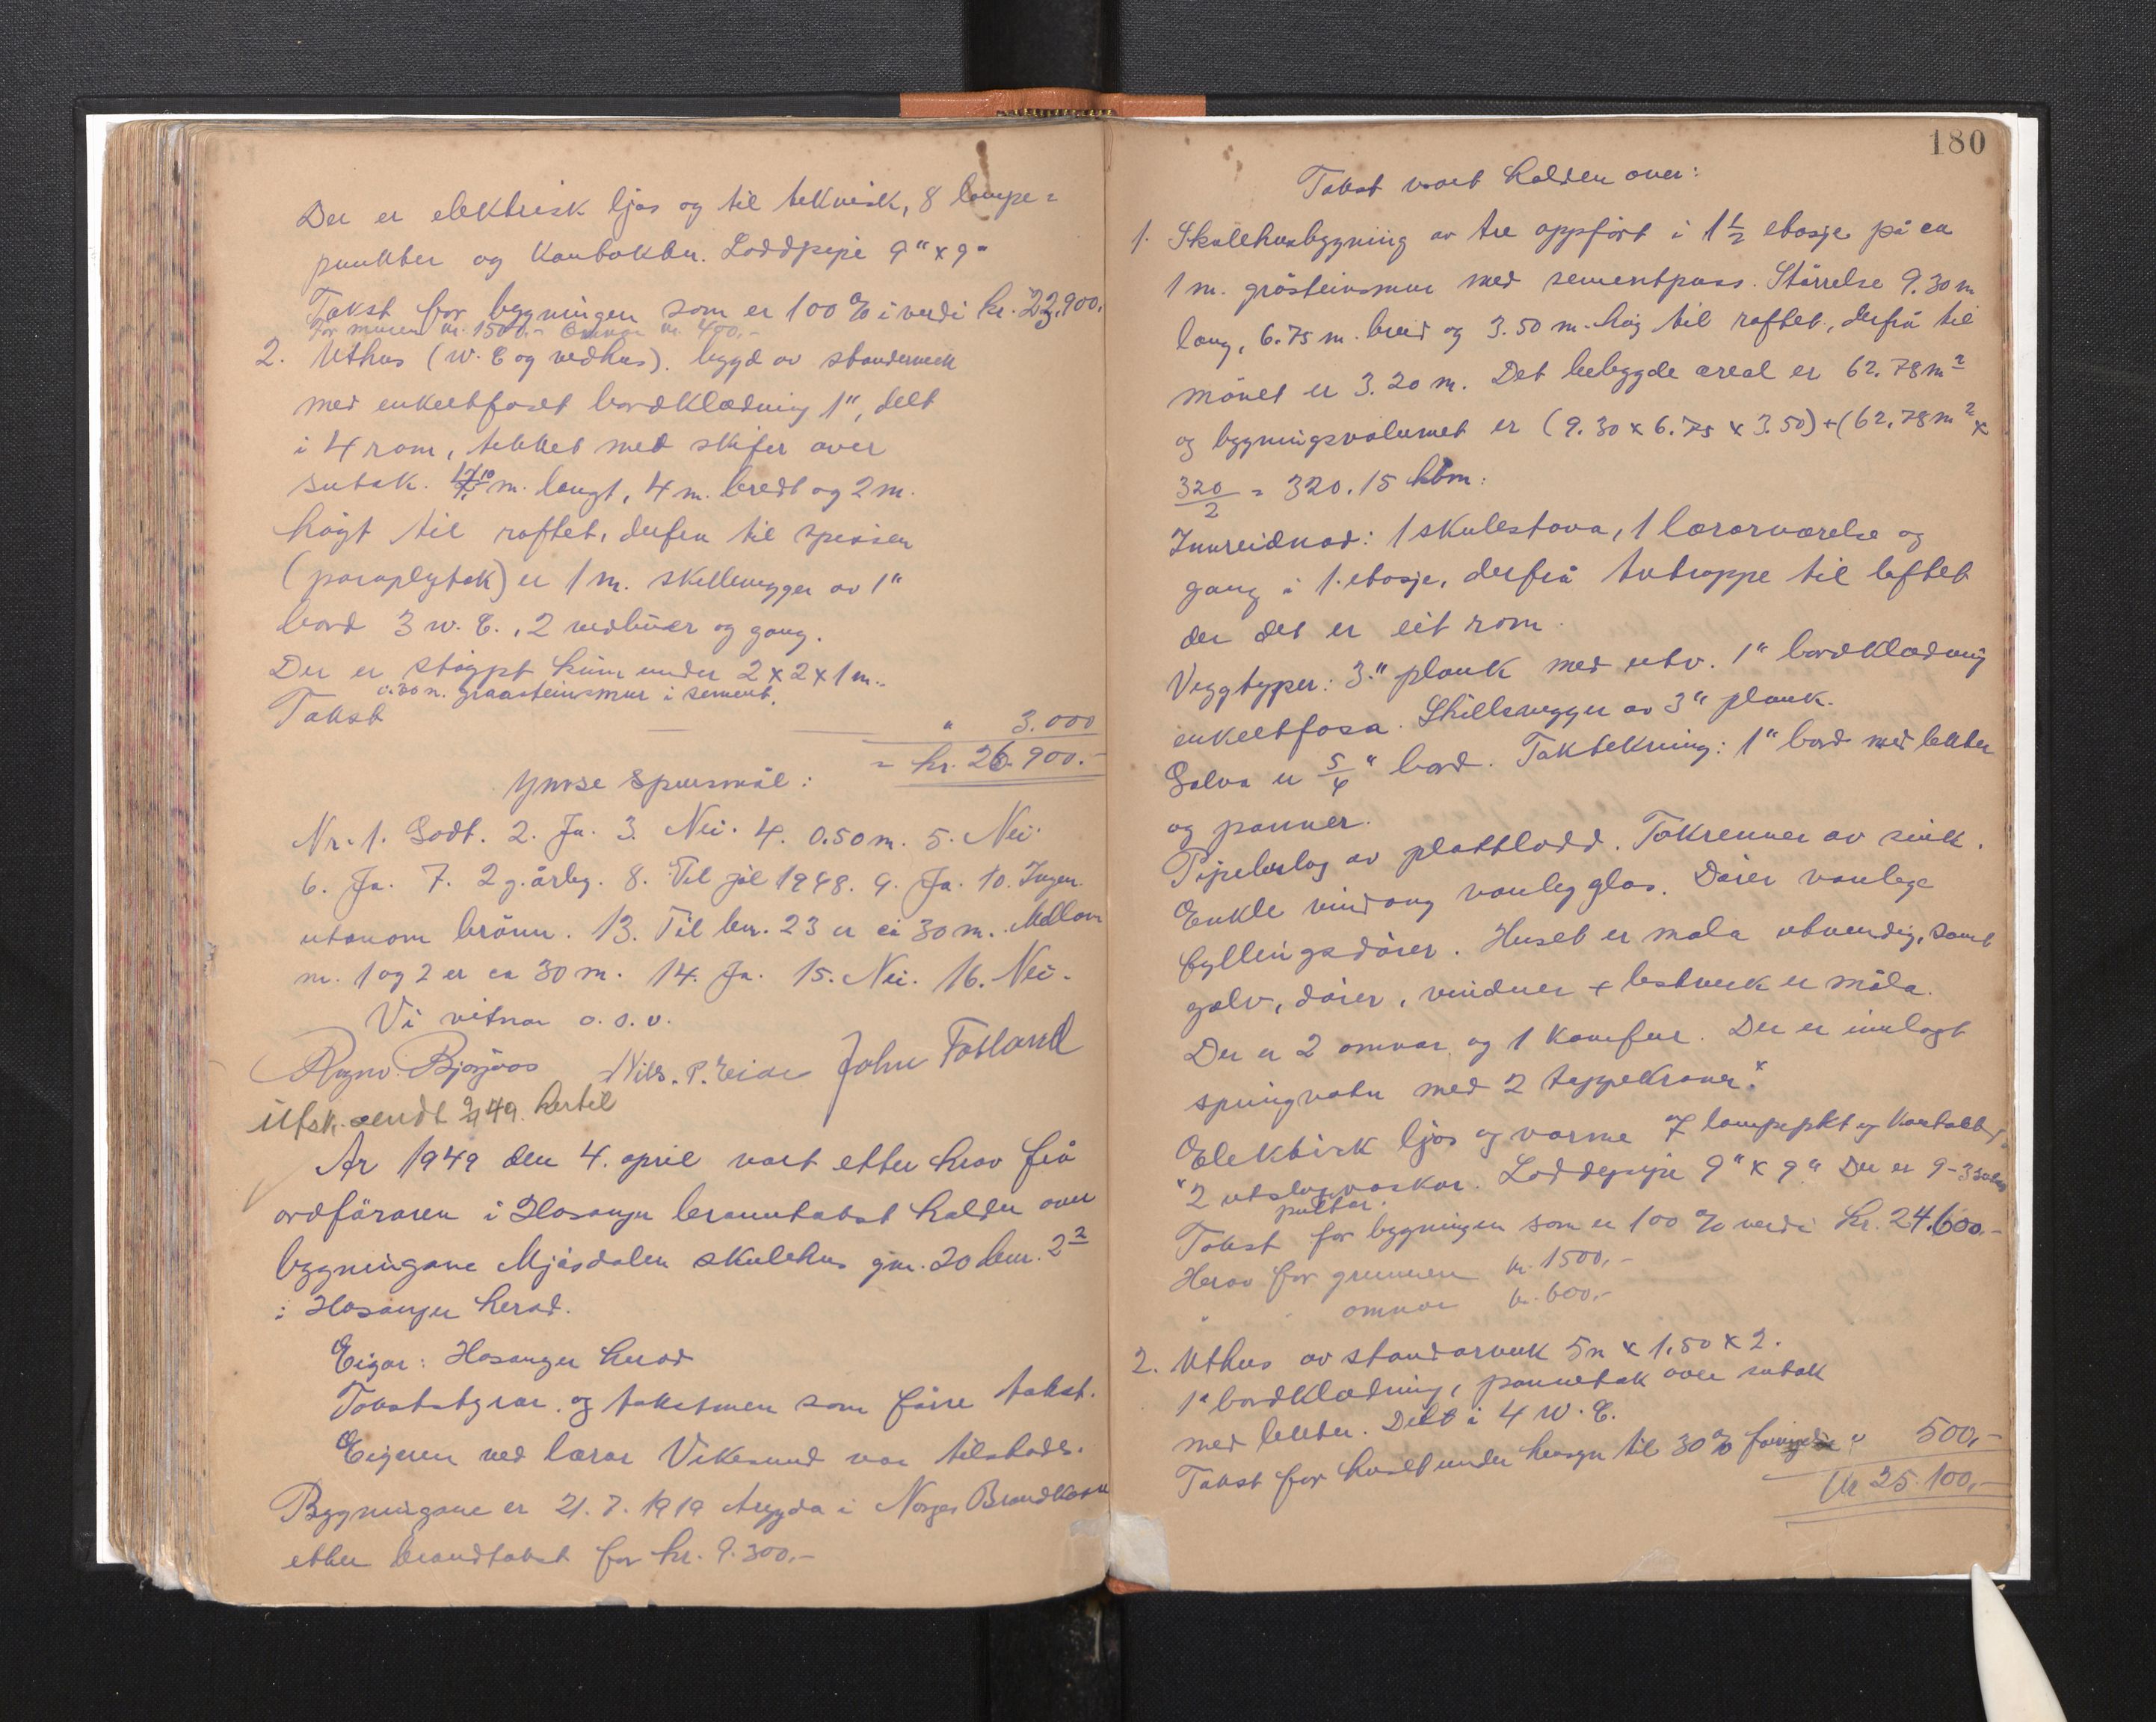 Der er elektrisk ljos og til teknisk, 8 lampe=
punkter og Kontakter. Loddpipe 9" x 9"
Takst for bygningen som er 100 % i verdi kr. 23.900.
For muren kr. 1500.- Omnar kr. 400,-
2. Uthus (W.C og vedhus). bygd av standerverk
med enkeltfaset bordklædning 1", delt
i 4 rom, tekket med skifer over
sutak. m. langt, 4 m. bredt og 2 m.
högt til raftet, derfra til spissen
(paraplytak) er 1 m. skillevegger av 1"
bord 3 W.C., 2 vedbuer og gang.
Der er støypt kum under 2 x 2 x 1 m.
0.30 m. graasteinsmur i sement.
Takst " 3.000
= kr. 26.900.-
Ymse Spursmål:
Nr. 1. Godt. 2. Ja. 3. Nei. 4. 0.50 m. 5. Nei.
6. Ja. 7. 2 g. årleg. 8. Til jol 1948. 9. Ja. 10. Ingen
utanom brönn. 13. Til bnr. 23 er ca 30 m. Mellom
nr. 1 og 2 er ca 30 m. 14. Ja. 15. Nei. 16. Nei.
Vi vitnar o.s.v.
Nils. P. Eide John Fosland
Utsk. sendt 49. hertil
År 1949 den 4. april vart etter krav frå
ordføraren i Hosanger branntakst halden over
bygningane Mjösdalen skulehus gnr. 20 bnr. 2²
i Hosanger herad.
Eigar: Hosanger herad
Takststyrar og takstmen som förre takst.
Eigaren ved lærar Vikesund var tilstades.
Bygningane er 21.7.1919 trygda i Norges Brandkasse
etter brandtakst for kr. 9.300,-
180
Takst vart halden over:
1. Skulehusbygning av tre oppfört i 1½ etasje på ca
1 m. gråsteinsmur med sementpuss. Störrelse 9.30 m
lang, 6.75 m. breid og 3.50 m. høg til raftet, derfrå til
mönet er 3.20 m. Det bebygde areal er 62.78 m²
og bygningsvolumet er (9.30 x 6.75 x 3.50) + (62.78 m² x
320/2 = 320.15 kbm.
Innreidnad: 1 skulestova, 1 lærarværelse og
gang i 1. etasje, derfrå tretrappe til loftet
der det er eit rom.
Veggtyper: 3" plank med utv. 1" bordklædning
enkeltfasa. Skillevegger av 3" plank.
Golva er 5/4" bord. Taktekning: 1" bord med lekter
og panner.
Pipebeslag av plattlodd. Takrenner av sink.
Enkle vindaug vanleg glas. Dörer vanlege
fyllingsdörer. Huset er mala utvendig, samt
golv, dörer, vinduer + listverk er måla.
Der er 2 omnar og 1 Komfur. Der er innlagt
springvatn med 2 tappekraner.
Elektrisk ljos og varme 7 lampepkt og kontakter
"2 utslagsvaskar. Loddepipe 9" x 9". Der er 9-3
pultar.
Takst for bygningen som er 100 % verdi kr. 24.600.-
Herav for grunnen kr. 1500,-
" " omnar kr. 600,-
2. Uthus av standarverk 5 m x 1.50 x 2.
1" bordklædning, pannetak over sutak
med lekter. Delt i 4 W.C.
Takst for huset under hensyn til 30 % " 500,-
Kr 25.100,-